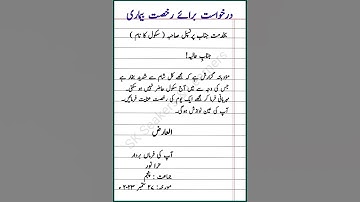 درخواست برائے رخصت بیماری
بخدمت جناب پرنسپل صاحبہ ( سکول کا نام )
جناب عالیہ!
مؤدبانہ گزارش ہے کہ مجھے کل شام سے شدید بخار ہے
جس کی وجہ سے میں آج سکول حاضر نہیں ہو سکتی۔
مہربانی فرما کر مجھے ایک یوم کی رخصت عنایت فرمائیں۔
آپ کی عین نوازش ہو گی۔
العارض
آپ کی فرماں بردار
حرا نور
جماعت: پنجم
مورخہ: ۲۷ ستمبر ۲۰۲۳ء